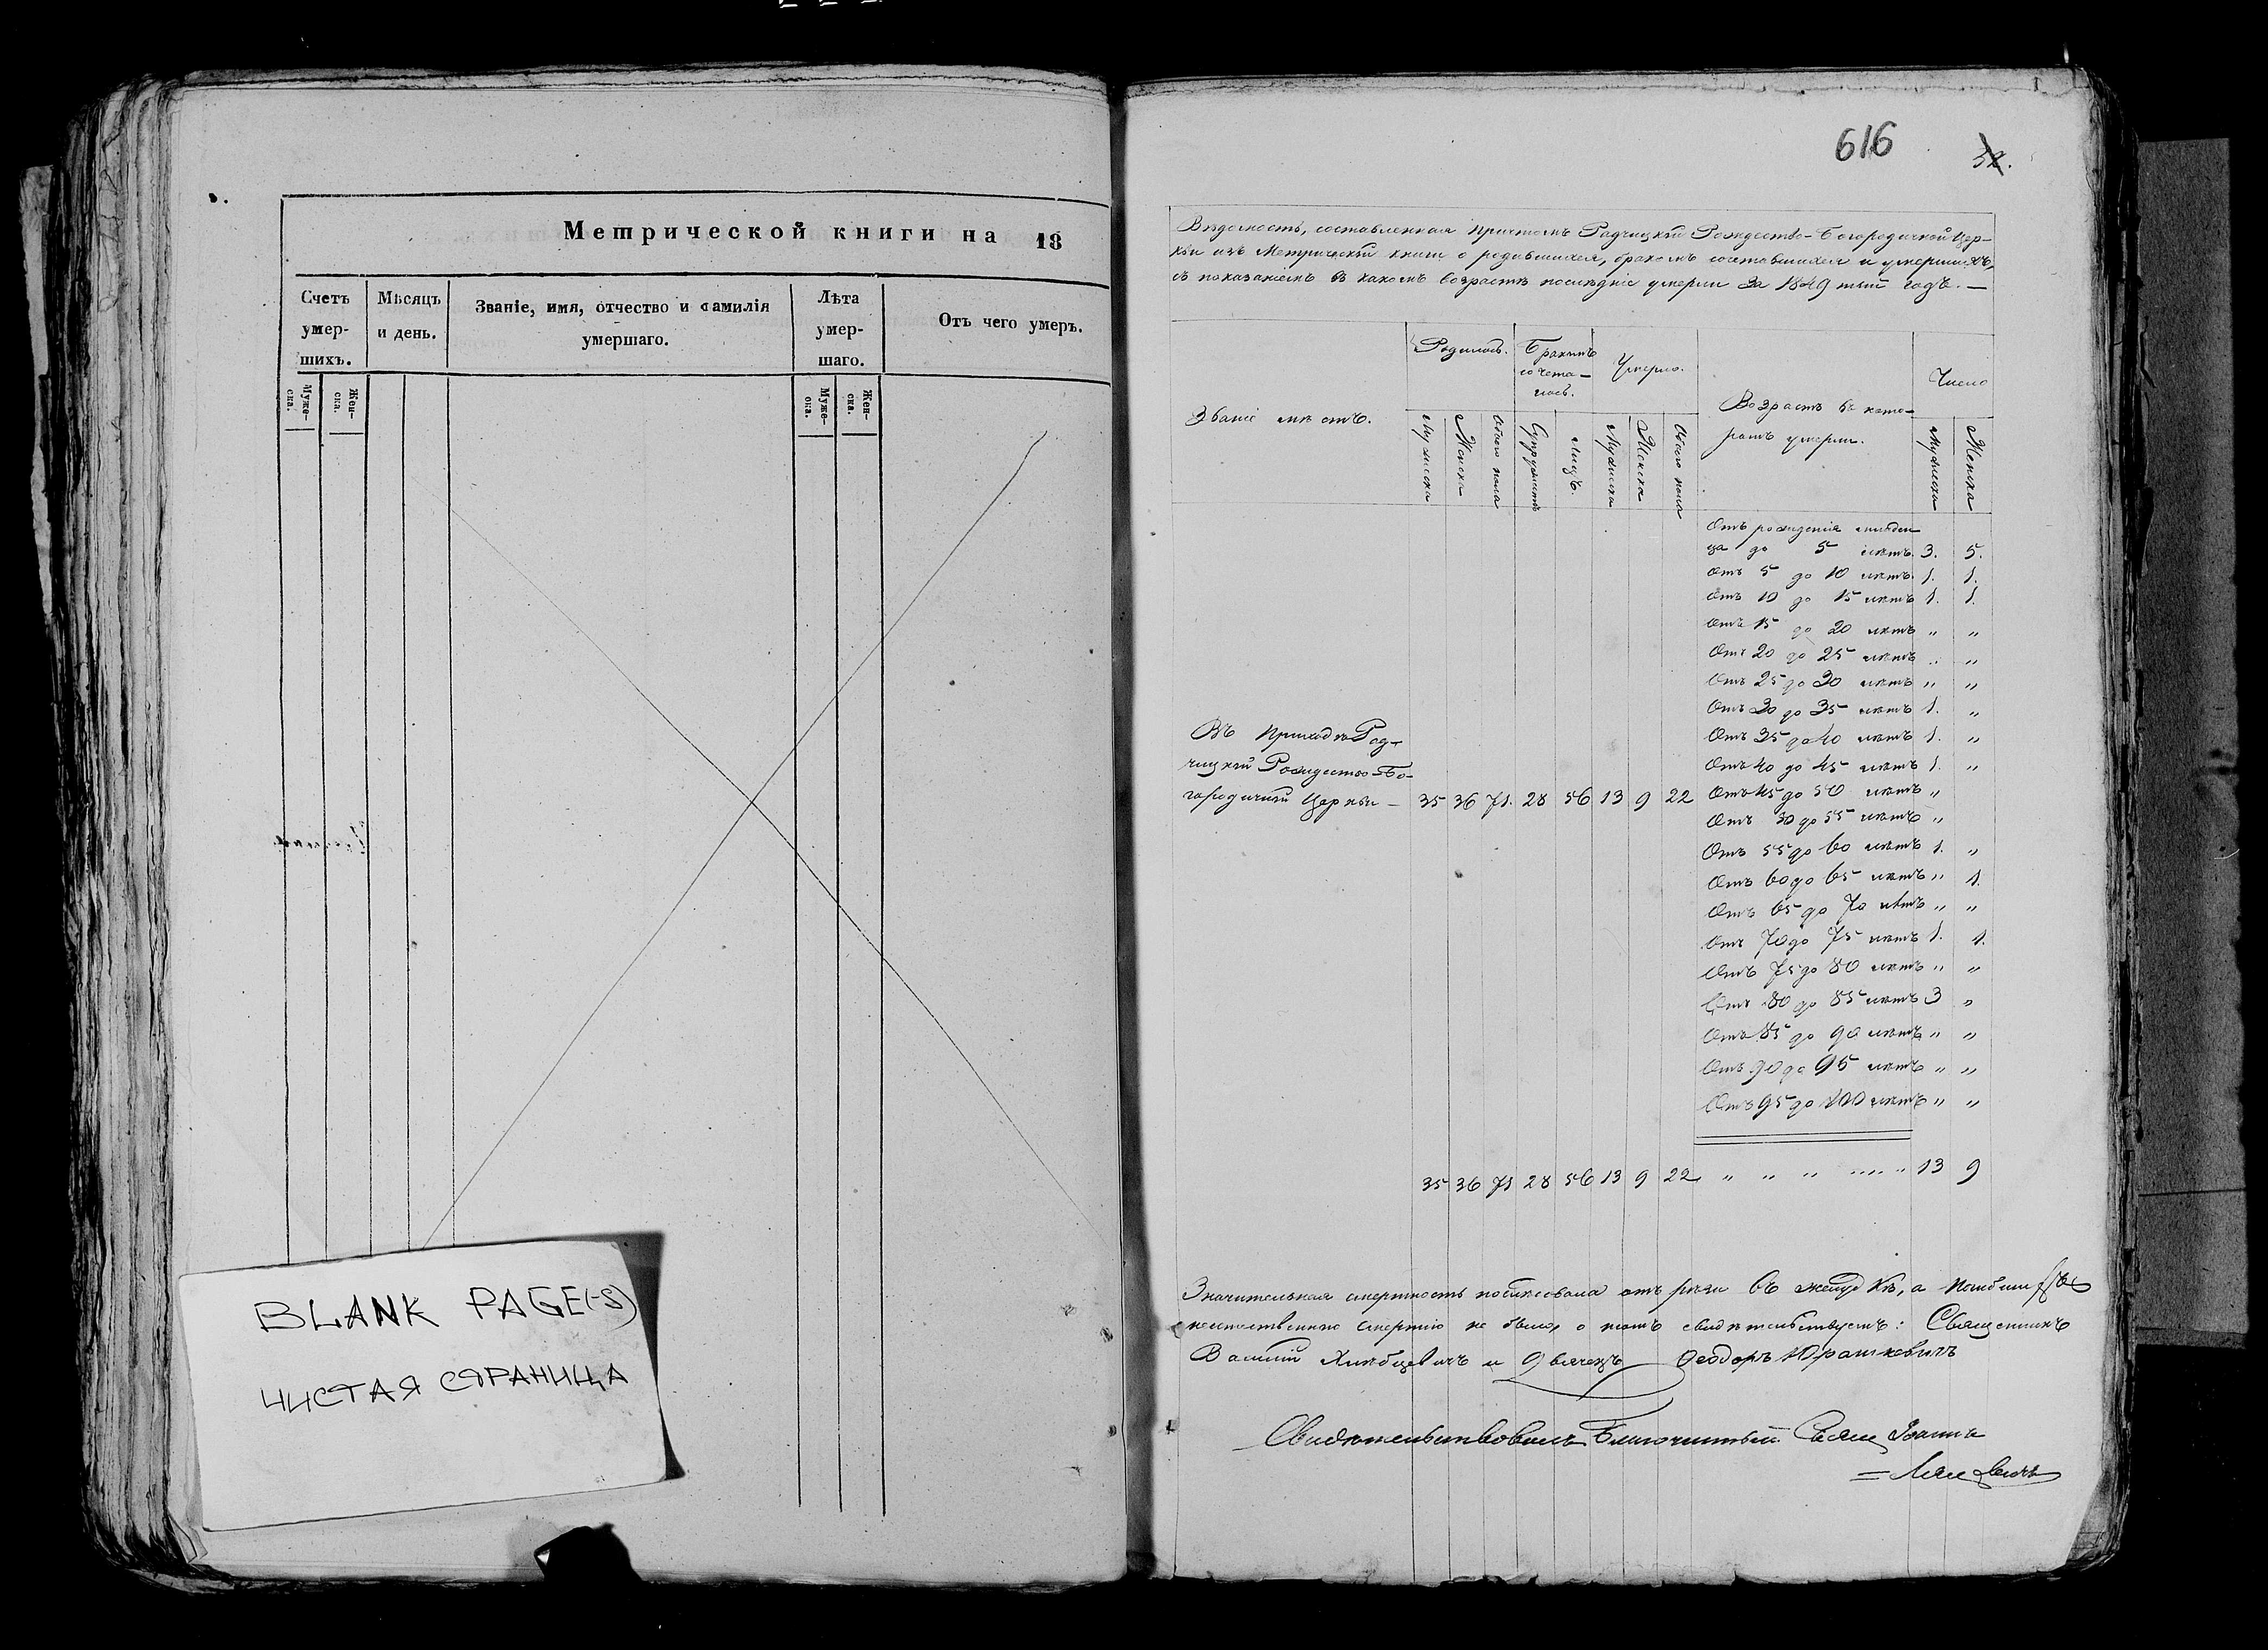 Метрической книги на 18
Счетъ умер- шихъ.
Мѣсяцъ и день.
Званіе, имя, отчество и фамилія умершаго.
Лѣта умер- шаго.
Отъ чего умеръ.
Муже- ска.
Жен- ска.
Муже- ска.
Жен- ска.
BLANK PAGE(-S)
ЧИСТАЯ СТРАНИЦА
616
Вѣдомость, составленная причтомъ Радчицкой Рождество-Богородичной Цер-
кви изъ Метрической книги о родившихся, бракомъ сочетавшихся и умершихъ,
съ показаніемъ въ какомъ возрастѣ послѣдніе умерли за 1849 тый годъ. —
Званіе мѣстъ.
Родилось.
Бракомъ сочета- лось.
Умерло.
Возрастъ въ кото- ромъ умерли.
Число
Мужеска
Женска
Обоего пола
Супружествъ
Лицъ.
Мужеска
Женска
Обоего пола
Мужеска
Женска
Отъ рожденія младен
ца до 5 лѣтъ. 3. 5.
Отъ 5 до 10 лѣтъ. 1. 1.
Отъ 10 до 15 лѣтъ 1. 1.
Отъ 15 до 20 лѣтъ " "
Отъ 20 до 25 лѣтъ " "
Отъ 25 до 30 лѣтъ " "
Отъ 30 до 35 лѣтъ 1. "
Отъ 35 до 40 лѣтъ 1. "
Отъ 40 до 45 лѣтъ 1. "
Въ приходѣ Рад-
чицкой Рождество-Бо-
городичной Церкви — 35 36 71. 28 56 13 9 22 Отъ 45 до 50 лѣтъ "
Отъ 50 до 55 лѣтъ "
Отъ 55 до 60 лѣтъ 1. "
Отъ 60 до 65 лѣтъ " 1.
Отъ 65 до 70 лѣтъ " "
Отъ 70 до 75 лѣтъ 1. 1.
Отъ 75 до 80 лѣтъ " "
Отъ 80 до 85 лѣтъ 3 "
Отъ 85 до 90 лѣтъ " "
Отъ 90 до 95 лѣтъ " "
Отъ 95 до 100 лѣтъ " "
35 36 71 28 56 13 9 22 " " " " " " 13 9
Значительная смертность послѣдовала отъ рѣзи въ желудкѣ, а
смертію не было, о томъ свидѣтельствуемъ: Священникъ
Василій и Дьячекъ Ѳеодоръ Юрашкевичъ
Свидѣтельствовалъ Благочинный Свящ Іоаннъ